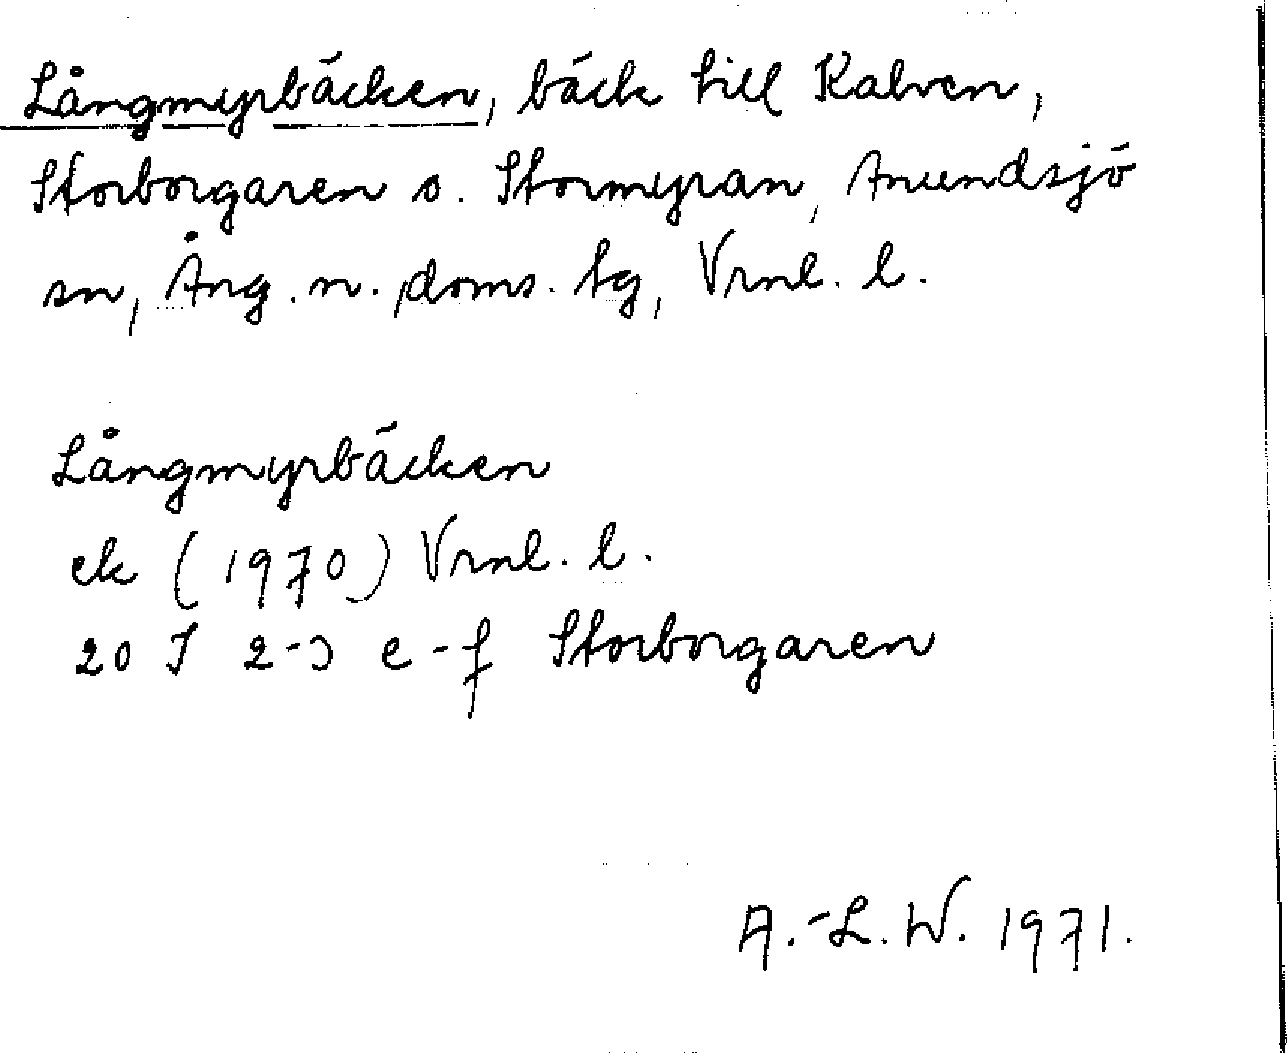 Långmyrbäcken, bäck till Kalven,
Storborgaren o. Stormyran, Anundsjö
sn, Ång. n. doms. tg, Vrnl. l.
Långmyrbäcken
ek (1970) Vrnl. l.
20 I 2-3 e-f Storborgaren
A.-L. W. 1971.